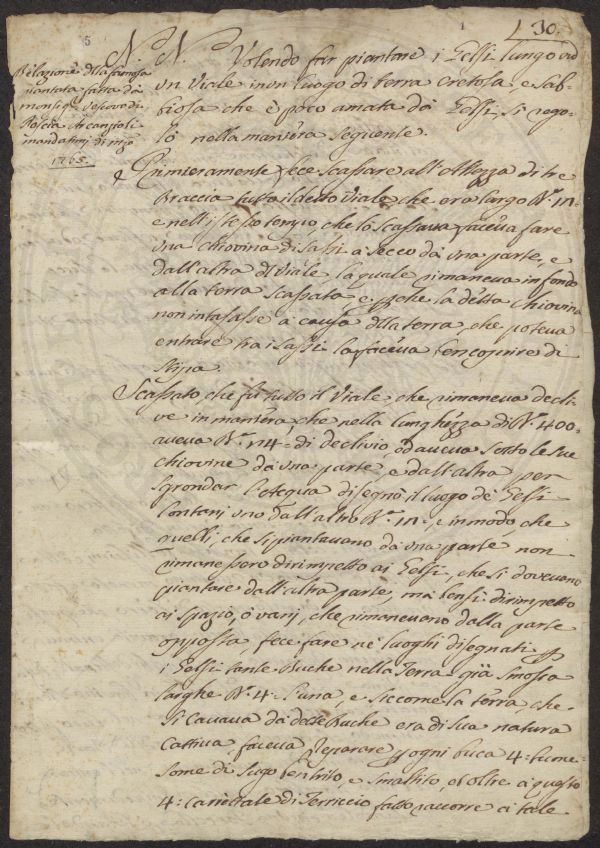 5
1
30.
Relazione della famosa
piantata fatta da
monsig.r Vescovo di
Pescia Arcangioli
mandatami di mgio
1765.
N. N. Volendo far piantare i Gelsi lungo ad
un Viale in un luogo di terra cretosa, e sab-
biosa che è poco amata da Gelsi, si rego-
lò nella maniera seguente.
Primieramente fece scassare all'Altezza di tre
Braccia tutto il detto Viale che era largo B.a
e nell'istesso tempo, che lo scassava faceva fare
una chiovina di sassi a secco da una parte, e
dall'altra del Viale, la quale rimaneva in fondo
alla terra scassata e perche la detta chiovina
non intasasse a causa della terra, che poteva
entrare tra i sassi la faceva ben coprire di
Stipa.
Scassato che fu tutto il Viale che rimaneva decli-
ve in maniera che nella lunghezza di B.a 400=
aveva B.a di declivio, ed aveva sotto le sue
chiovine da una parte e dall'altra per
sgrondar l'Acqua disegnò il luogo de Gelsi
lontani uno dall'altro B.a e in modo, che
quelli, che si piantavano da una parte non
rimanessero dirimpetto ai Gelsi, che si dovevano
piantare dall'altra parte, ma bensi dirimpetto
ai spazio, ò vani, che rimanevano dalla parte
opposta, fece fare ne luoghi disegnati p
i Gelsi tante Buche nella Terra già smossa
larghe B.a 4= l'una, e siccome la terra che
si cavava da dette Buche era di sua natura
Cattiva, faceva preparare p ogni buca 4=
some di Sugo ben trito, e smaltito, et oltre a questo
4= carrettate di Terriccio fatto raccorre a tale